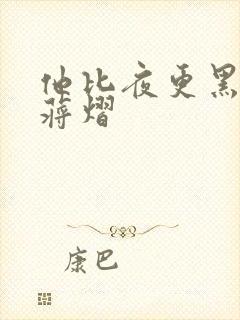 他比夜更黑
蒋熠
康巴